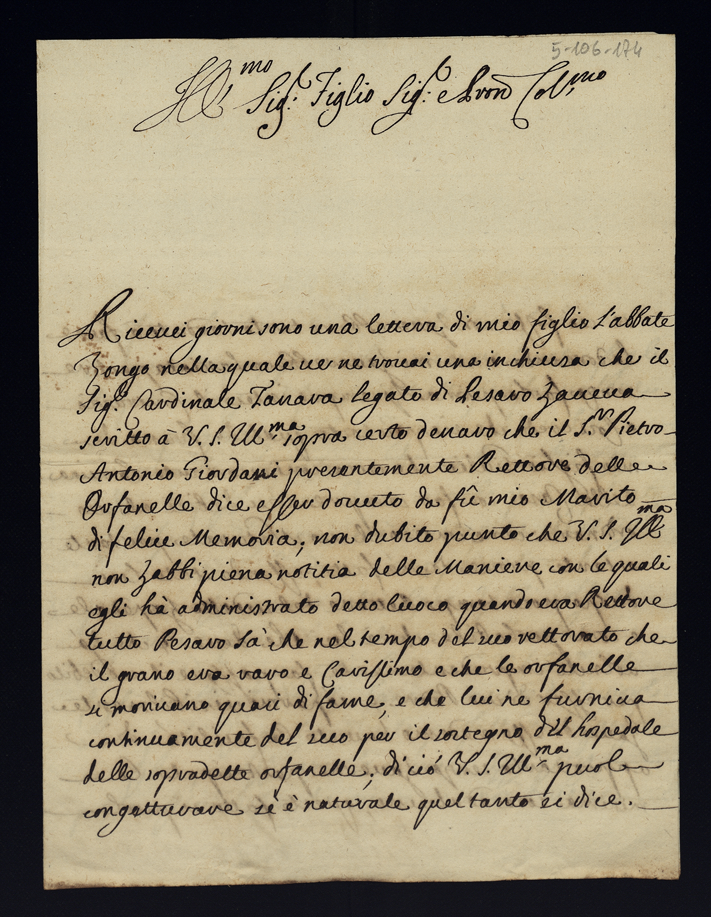 5-106-174
Ill.mo Sig.r Figlio Sig.r e Pron Col.mo
Riceuei giorni sono una lettera di mio figlio l'abbate
Zongo nella quale ue ne trouai una inchiusa che il
Sig.r Cardinale Tanara legato di Pesaro haueua
scritto à V. S. Ill.ma sopra certo denaro che il S.r Pietro
Antonio Giordani presentemente Rettore delle
Orfanelle dice esser douuto da fù mio Marito
di felice Memoria; non dubito punto che V. S. Ill.ma
non habbi piena notitia delle Maniere con le quali
egli hà administrato detto luoco quando era Rettore
tutto Pesaro sà che nel tempo del suo rettorato che
il grano era raro e Carissimo e che le orfanelle
si moriuano quasi di fame, e che lui ne furniua
continuamente del suo per il sostegno del hospedale
delle sopradette orfanelle; di ciò V. S. Ill.ma puol
congetturare se è naturale quel tanto si dice.